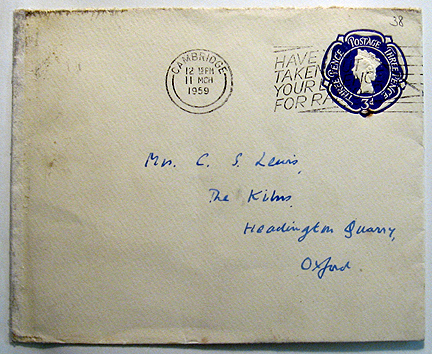 38
CAMBRIDGE
12 15PM
11 MCH
1959
HAVE
TAKEN
YOUR
FOR RA
POSTAGE
THREE PENCE
THREE PENCE
3d
Mrs. C. S. Lewis,
The Kilns,
Headington Quarry,
Oxford.